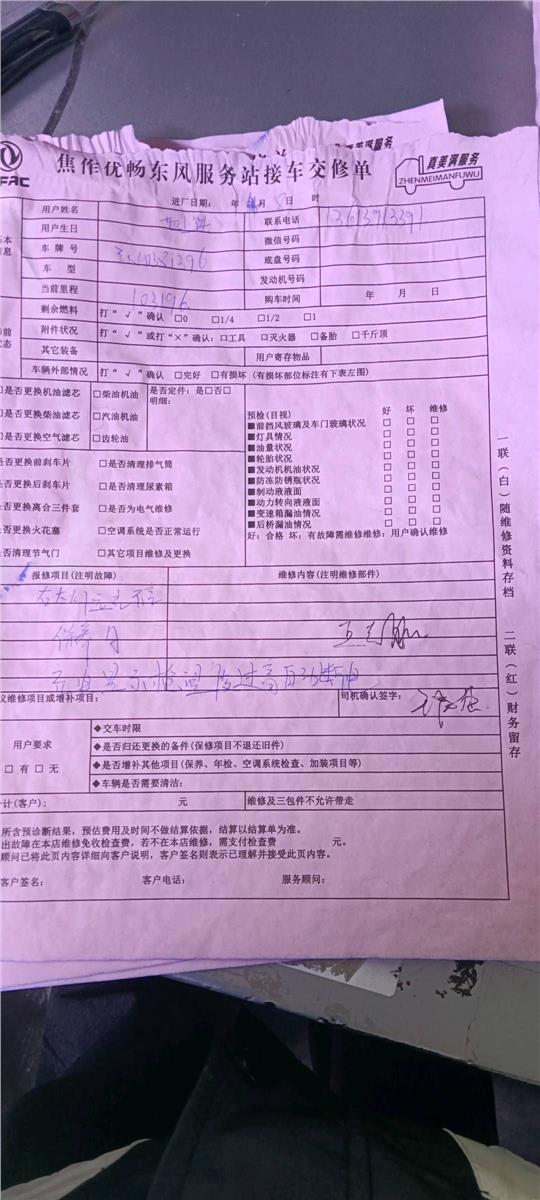 焦作优畅东风服务站接车交修单
真美满服务
ZHENMEIMANFUWU
进厂日期： 年 月 8日 时
用户姓名 联系电话
用户生日 微信号码
车牌号 底盘号码
车型 发动机号码
当前里程 103196 购车时间 年 月 日
剩余燃料 打“√”确认 □0 □1/4 □1/2 □1
附件状况 打“√”或打“×”确认：□工具 □灭火器 □备胎 □千斤顶
其它装备 用户寄存物品
车辆外部情况 打“√”确认 □完好 □有损坏（有损坏部位标注有下表左图）
是否更换机油滤芯 □柴油机油 是否定件：是□否□
明细：
是否更换柴油滤芯 □汽油机油
是否更换空气滤芯 □齿轮油
预检(目视) 好 坏 维修
■前挡风玻璃及车门玻璃状况 □ □ □
■灯具情况 □ □ □
■油量状况 □ □ □
■轮胎状况 □ □ □
■发动机机油状况 □ □ □
■防冻防锈瓶状况 □ □ □
■制动液液面 □ □ □
■动力转向液液面 □ □ □
■变速箱漏油情况 □ □ □
■后桥漏油情况 □ □ □
好：合格 坏：有故障需维修维修：用户确认维修
是否更换前刹车片 □是否清理排气筒
是否更换后刹车片 □是否清理尿素箱
是否更换离合三件套 □是否为电气维修
是否更换火花塞 □空调系统是否正常运行
是否清理节气门 □其它项目维修及更换
报修项目(注明故障) 维修内容(注明维修部件)
保养
议维修项目或增补项目： 司机确认签字：
用户要求
□有□无
◆交车时限
◆是否归还更换的备件(保修项目不退还旧件)
◆是否增补其他项目(保养、年检、空调系统检查、加装项目等)
◆车辆是否需要清洁：
计(客户)： 元 维修及三包件不允许带走
所含预诊断结果，预估费用及时间不做结算依据，结算以结算单为准。
出故障在本店维修免收检查费，若不在本店维修，需支付检查费 元。
顾问已将此页内容详细向客户说明，客户签名则表示已理解并接受此页内容。
客户签名： 客户电话： 服务顾问：
一联（白）随维修资料存档 二联（红）财务留存